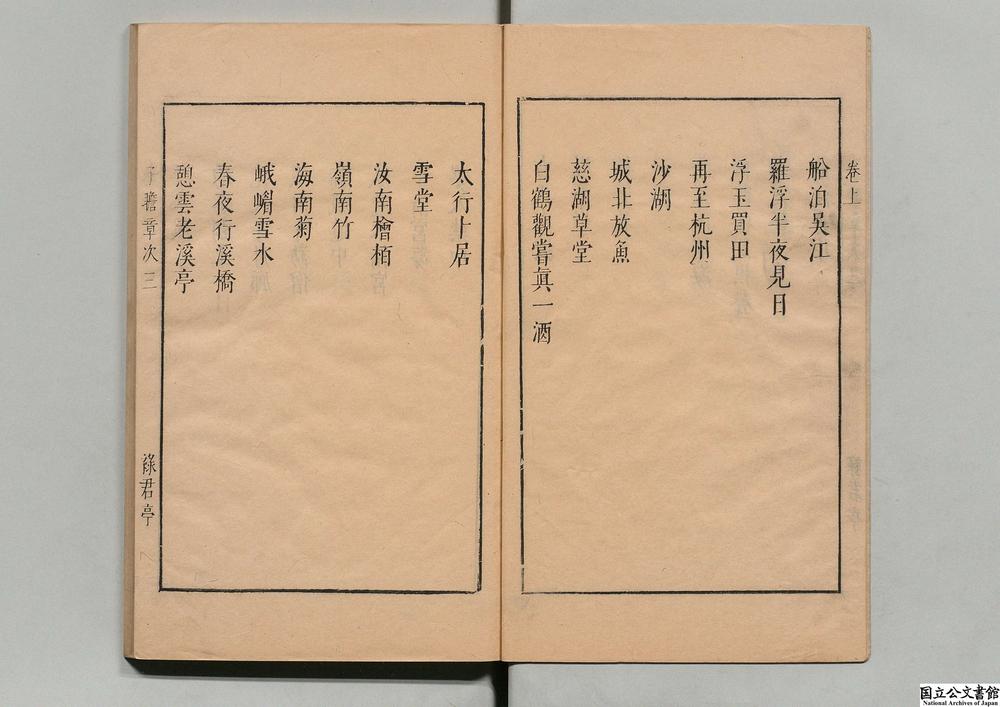 卷上
船泊吳江
羅浮半夜見日
浮玉買田
再至杭州
沙湖
城北放魚
慈湖草堂
白鶴觀嘗眞一酒
太行卜居
雪堂
汝南檜栢
嶺南竹
海南菊
峨嵋雪水
春夜行溪橋
憩雲老溪亭
章次 三
綠君亭
国立公文書館
National Archives of Japan